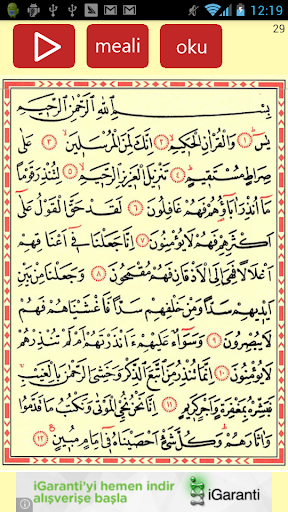 12:19
meali
oku
29
بِسْمِ اللّٰهِ الرَّحْمٰنِ الرَّحِيمِ
يٰسٓ ﴿١﴾ وَالْقُرْاٰنِ الْحَكِيمِ ﴿٢﴾ اِنَّكَ لَمِنَ الْمُرْسَلِينَ ﴿٣﴾ عَلٰى
صِرَاطٍ مُسْتَقِيمٍ ﴿٤﴾ تَنْزِيلَ الْعَزِيزِ الرَّحِيمِ ﴿٥﴾ لِتُنْذِرَ قَوْمًا
مَا اُنْذِرَ اٰبَاؤُهُمْ فَهُمْ غَافِلُونَ ﴿٦﴾ لَقَدْ حَقَّ الْقَوْلُ عَلٰى
اَكْثَرِهِمْ فَهُمْ لَا يُؤْمِنُونَ ﴿٧﴾ اِنَّا جَعَلْنَا فِي اَعْنَاقِهِمْ
اَغْلَالًا فَهِيَ اِلَى الْاَذْقَانِ فَهُمْ مُقْمَحُونَ ﴿٨﴾ وَجَعَلْنَا مِنْ بَيْنِ
اَيْدِيهِمْ سَدًّا وَمِنْ خَلْفِهِمْ سَدًّا فَاَغْشَيْنَاهُمْ فَهُمْ
لَا يُبْصِرُونَ ﴿٩﴾ وَسَوَاءٌ عَلَيْهِمْ ءَاَنْذَرْتَهُمْ اَمْ لَمْ تُنْذِرْهُمْ
لَا يُؤْمِنُونَ ﴿١٠﴾ اِنَّمَا تُنْذِرُ مَنِ اتَّبَعَ الذِّكْرَ وَخَشِيَ الرَّحْمٰنَ بِالْغَيْبِ
فَبَشِّرْهُ بِمَغْفِرَةٍ وَاَجْرٍ كَرِيمٍ ﴿١١﴾ اِنَّا نَحْنُ نُحْيِ الْمَوْتٰى وَنَكْتُبُ مَا قَدَّمُوا
وَاٰثَارَهُمْ وَكُلَّ شَيْءٍ اَحْصَيْنَاهُ فِي اِمَامٍ مُبِينٍ ﴿١٢﴾
iGaranti'yi hemen indir
alışverişe başla
iGaranti